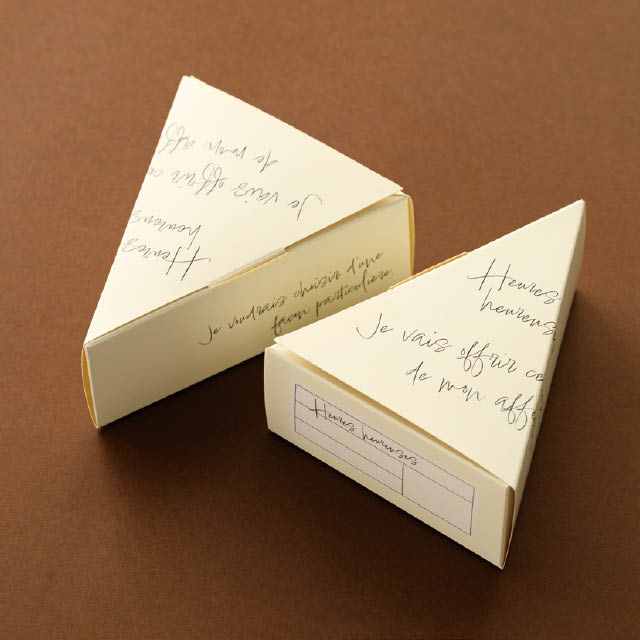 Je vais offrir
de mon aff
Heures
heureus
Je voudrais choisir d'une
façon particulière.
Heures
heureus
Je vais offrir co
de mon aff
Heures heureuses